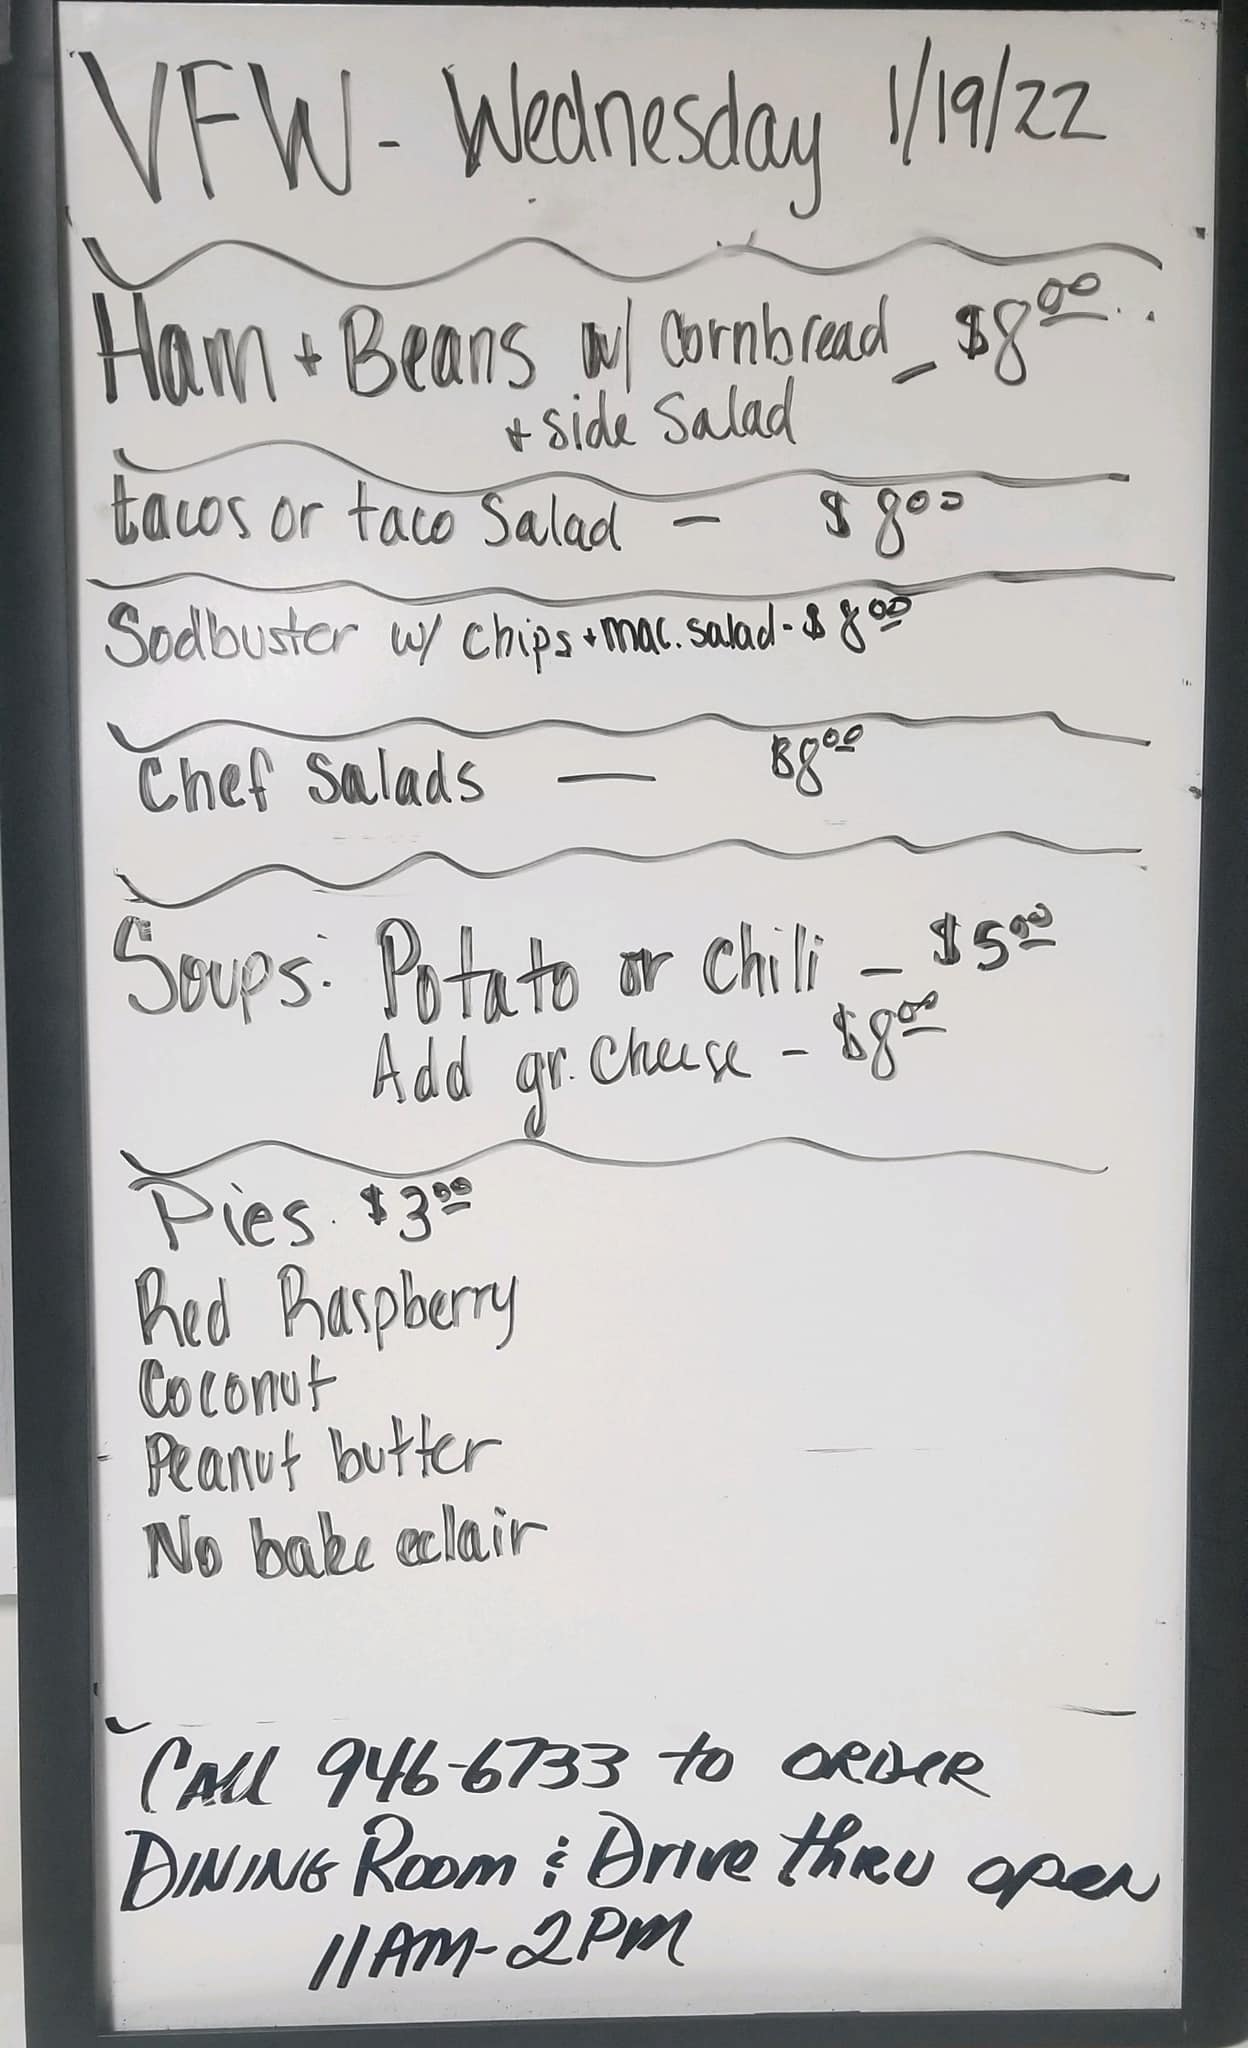 VFW - Wednesday 1/19/22
Ham + Beans w/ Cornbread - $8.00
+ side Salad
tacos or taco Salad - $8.00
Sodbuster w/ chips + mac. salad - $8.00
Chef Salads - $8.00
Soups: Potato or Chili - $5.00
Add gr. Cheese - $8.00
Pies $3.00
Red Raspberry
Coconut
Peanut butter
No bake eclair
CALL 946-6733 to ORDER
DINING Room & Drive thru open
11AM-2PM